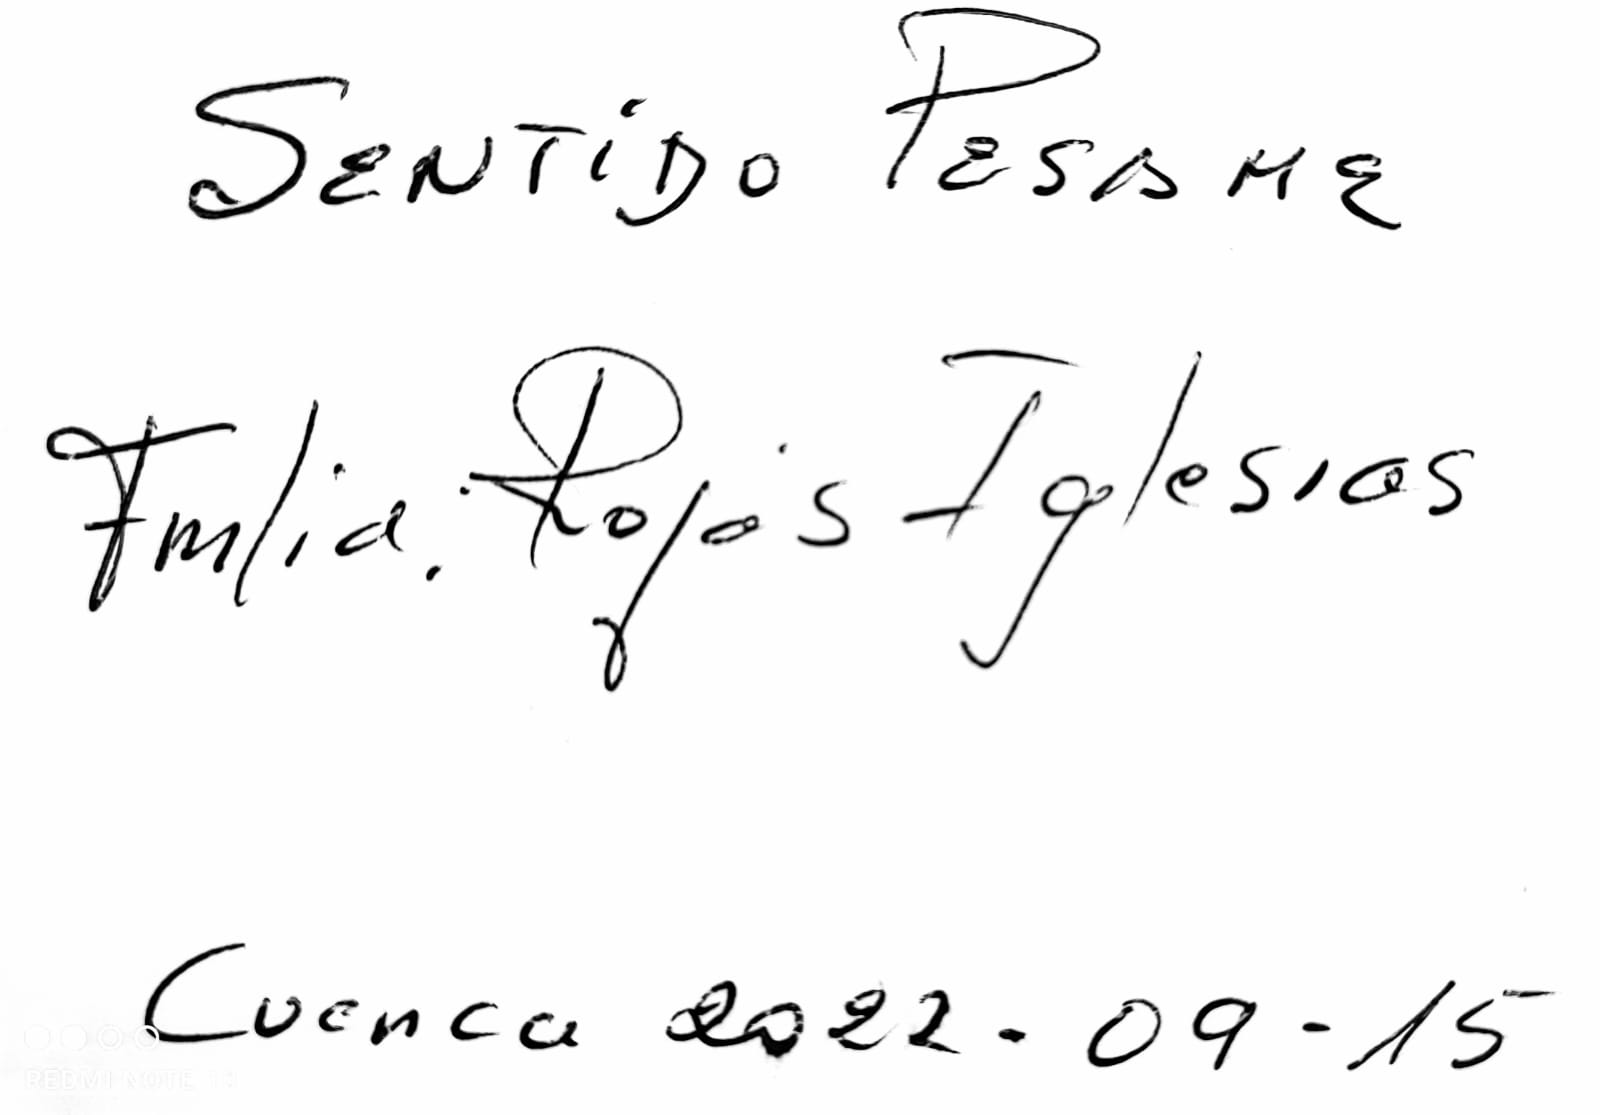 SENTIDO PESAME
Fmlia. Rojas Iglesias
Cuenca 2022-09-15
REDMI NOTE